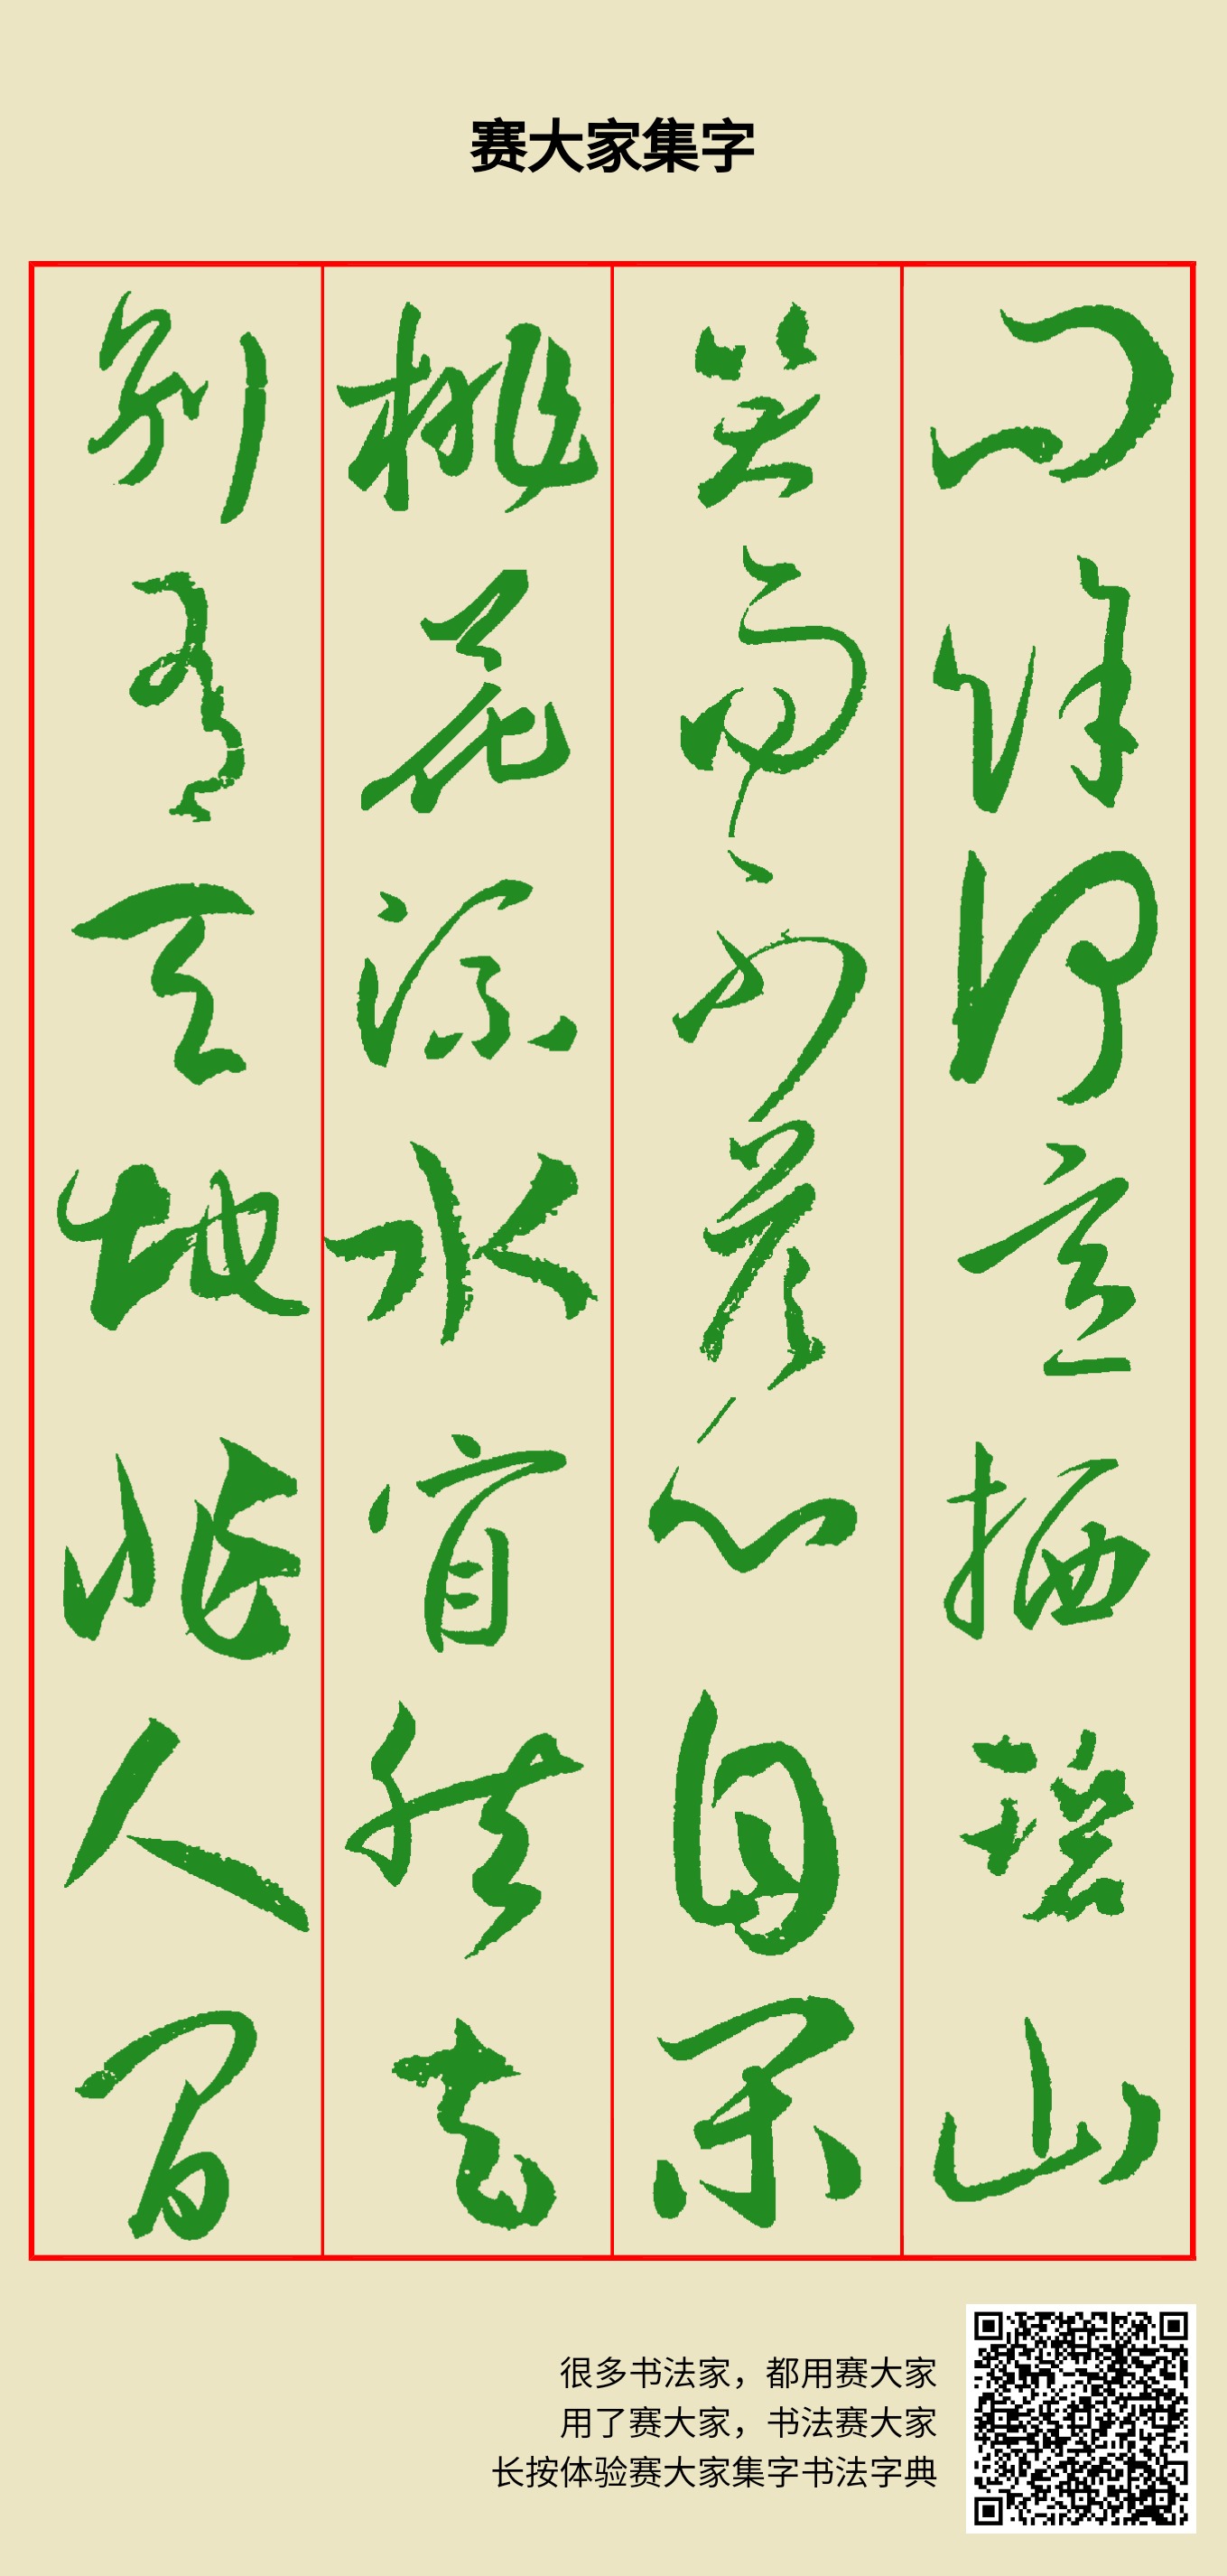 赛大家集字
问余何意栖碧山
笑而不答心自闲
桃花流水窅然去
别有天地非人间
很多书法家，都用赛大家
用了赛大家，书法赛大家
长按体验赛大家集字书法字典